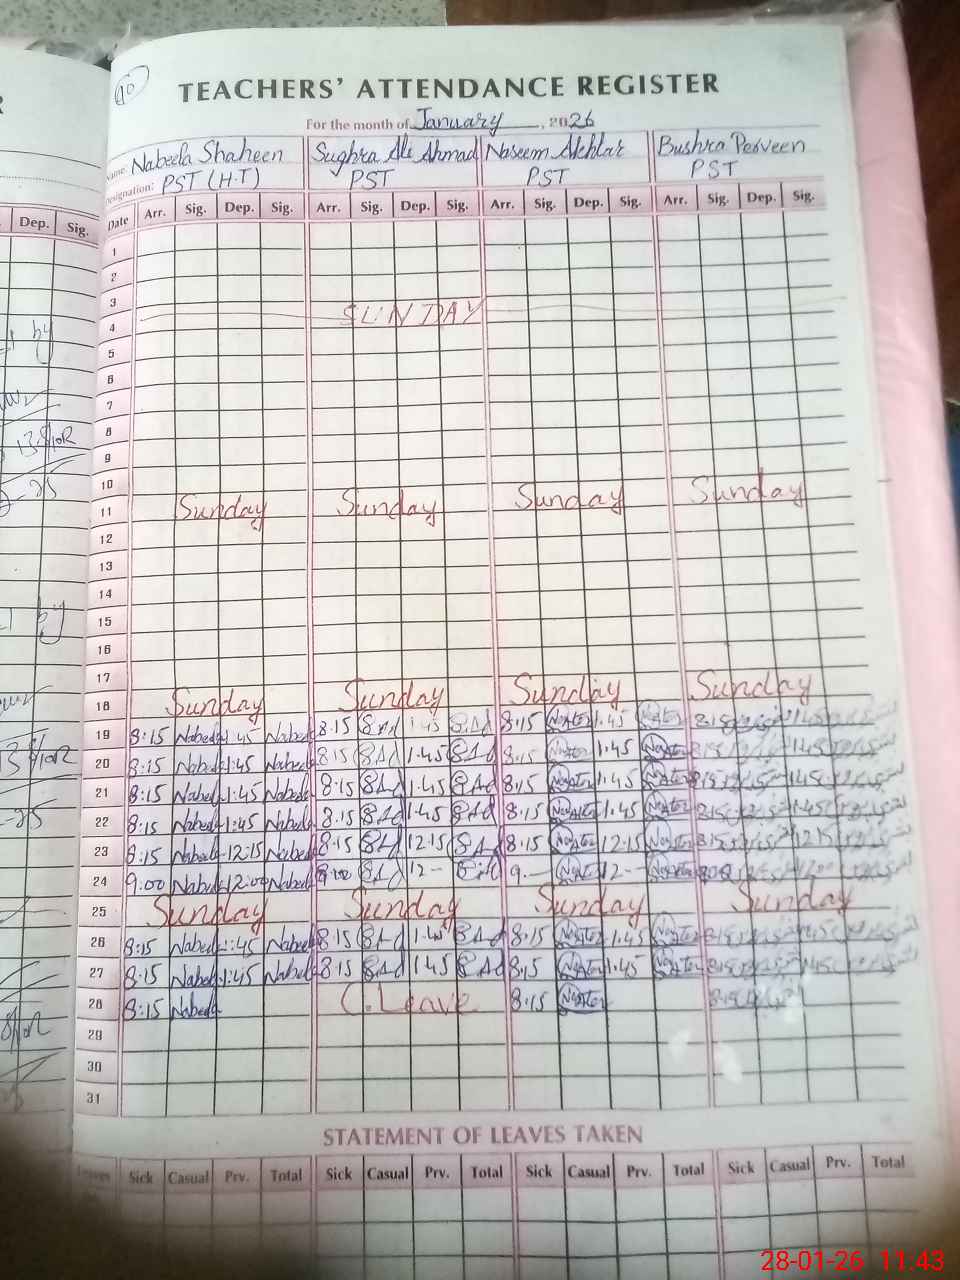 10
TEACHERS' ATTENDANCE REGISTER
For the month of January, 2026
Name: Nabeela Shaheen Sughra Ali Ahmad Naseem Akhtar Bushra Perveen
Designation: PST (H.T) PST PST PST
Dep. Sig.
Date Arr. Sig. Dep. Sig. Arr. Sig. Dep. Sig. Arr. Sig. Dep. Sig. Arr. Sig. Dep. Sig.
1
2
3
SUNDAY
4
5
6
7
8
9
10
11 Sunday Sunday Sunday Sunday
12
13
14
15
16
17
18 Sunday Sunday Sunday Sunday
19 8:15 Nabeela 1:45 Nabeela 8:15 SAd 1:45 SAd 8:15 1:45 8:15 1:45
20 8:15 Nabeela 1:45 Nabeela 8:15 SAd 1.45 SAd 8:15 1.45 8:15 1:45
21 8:15 Nabeela 1:45 Nabeela 8:15 SAd 1.45 SAd 8:15 1.45 8:15 1:45
22 8:15 Nabeela 1:45 Nabeela 8.15 SAd 1.45 SAd 8:15 1.45 8:15 1:45
23 8:15 Nabeela 12:15 Nabeela 8.15 SAd 12:15 SAd 8:15 12:15 8:15 12:15
24 9:00 Nabeela 12:00 Nabeela 9:00 SAd 12- SAd 9.- 12-
25 Sunday Sunday Sunday Sunday
26 8:15 Nabeela 1:45 Nabeela 8:15 SAd 1.45 SAd 8:15 1.45 8:15 1:45
27 8:15 Nabeela 1:45 Nabeela 8:15 SAd 1.45 SAd 8:15 1.45 8:15 1:45
28 8:15 Nabeela C.Leave 8:15 8:15
29
30
31
STATEMENT OF LEAVES TAKEN
Leaves Sick Casual Prv. Total Sick Casual Prv. Total Sick Casual Prv. Total Sick Casual Prv. Total
28-01-26 11:43